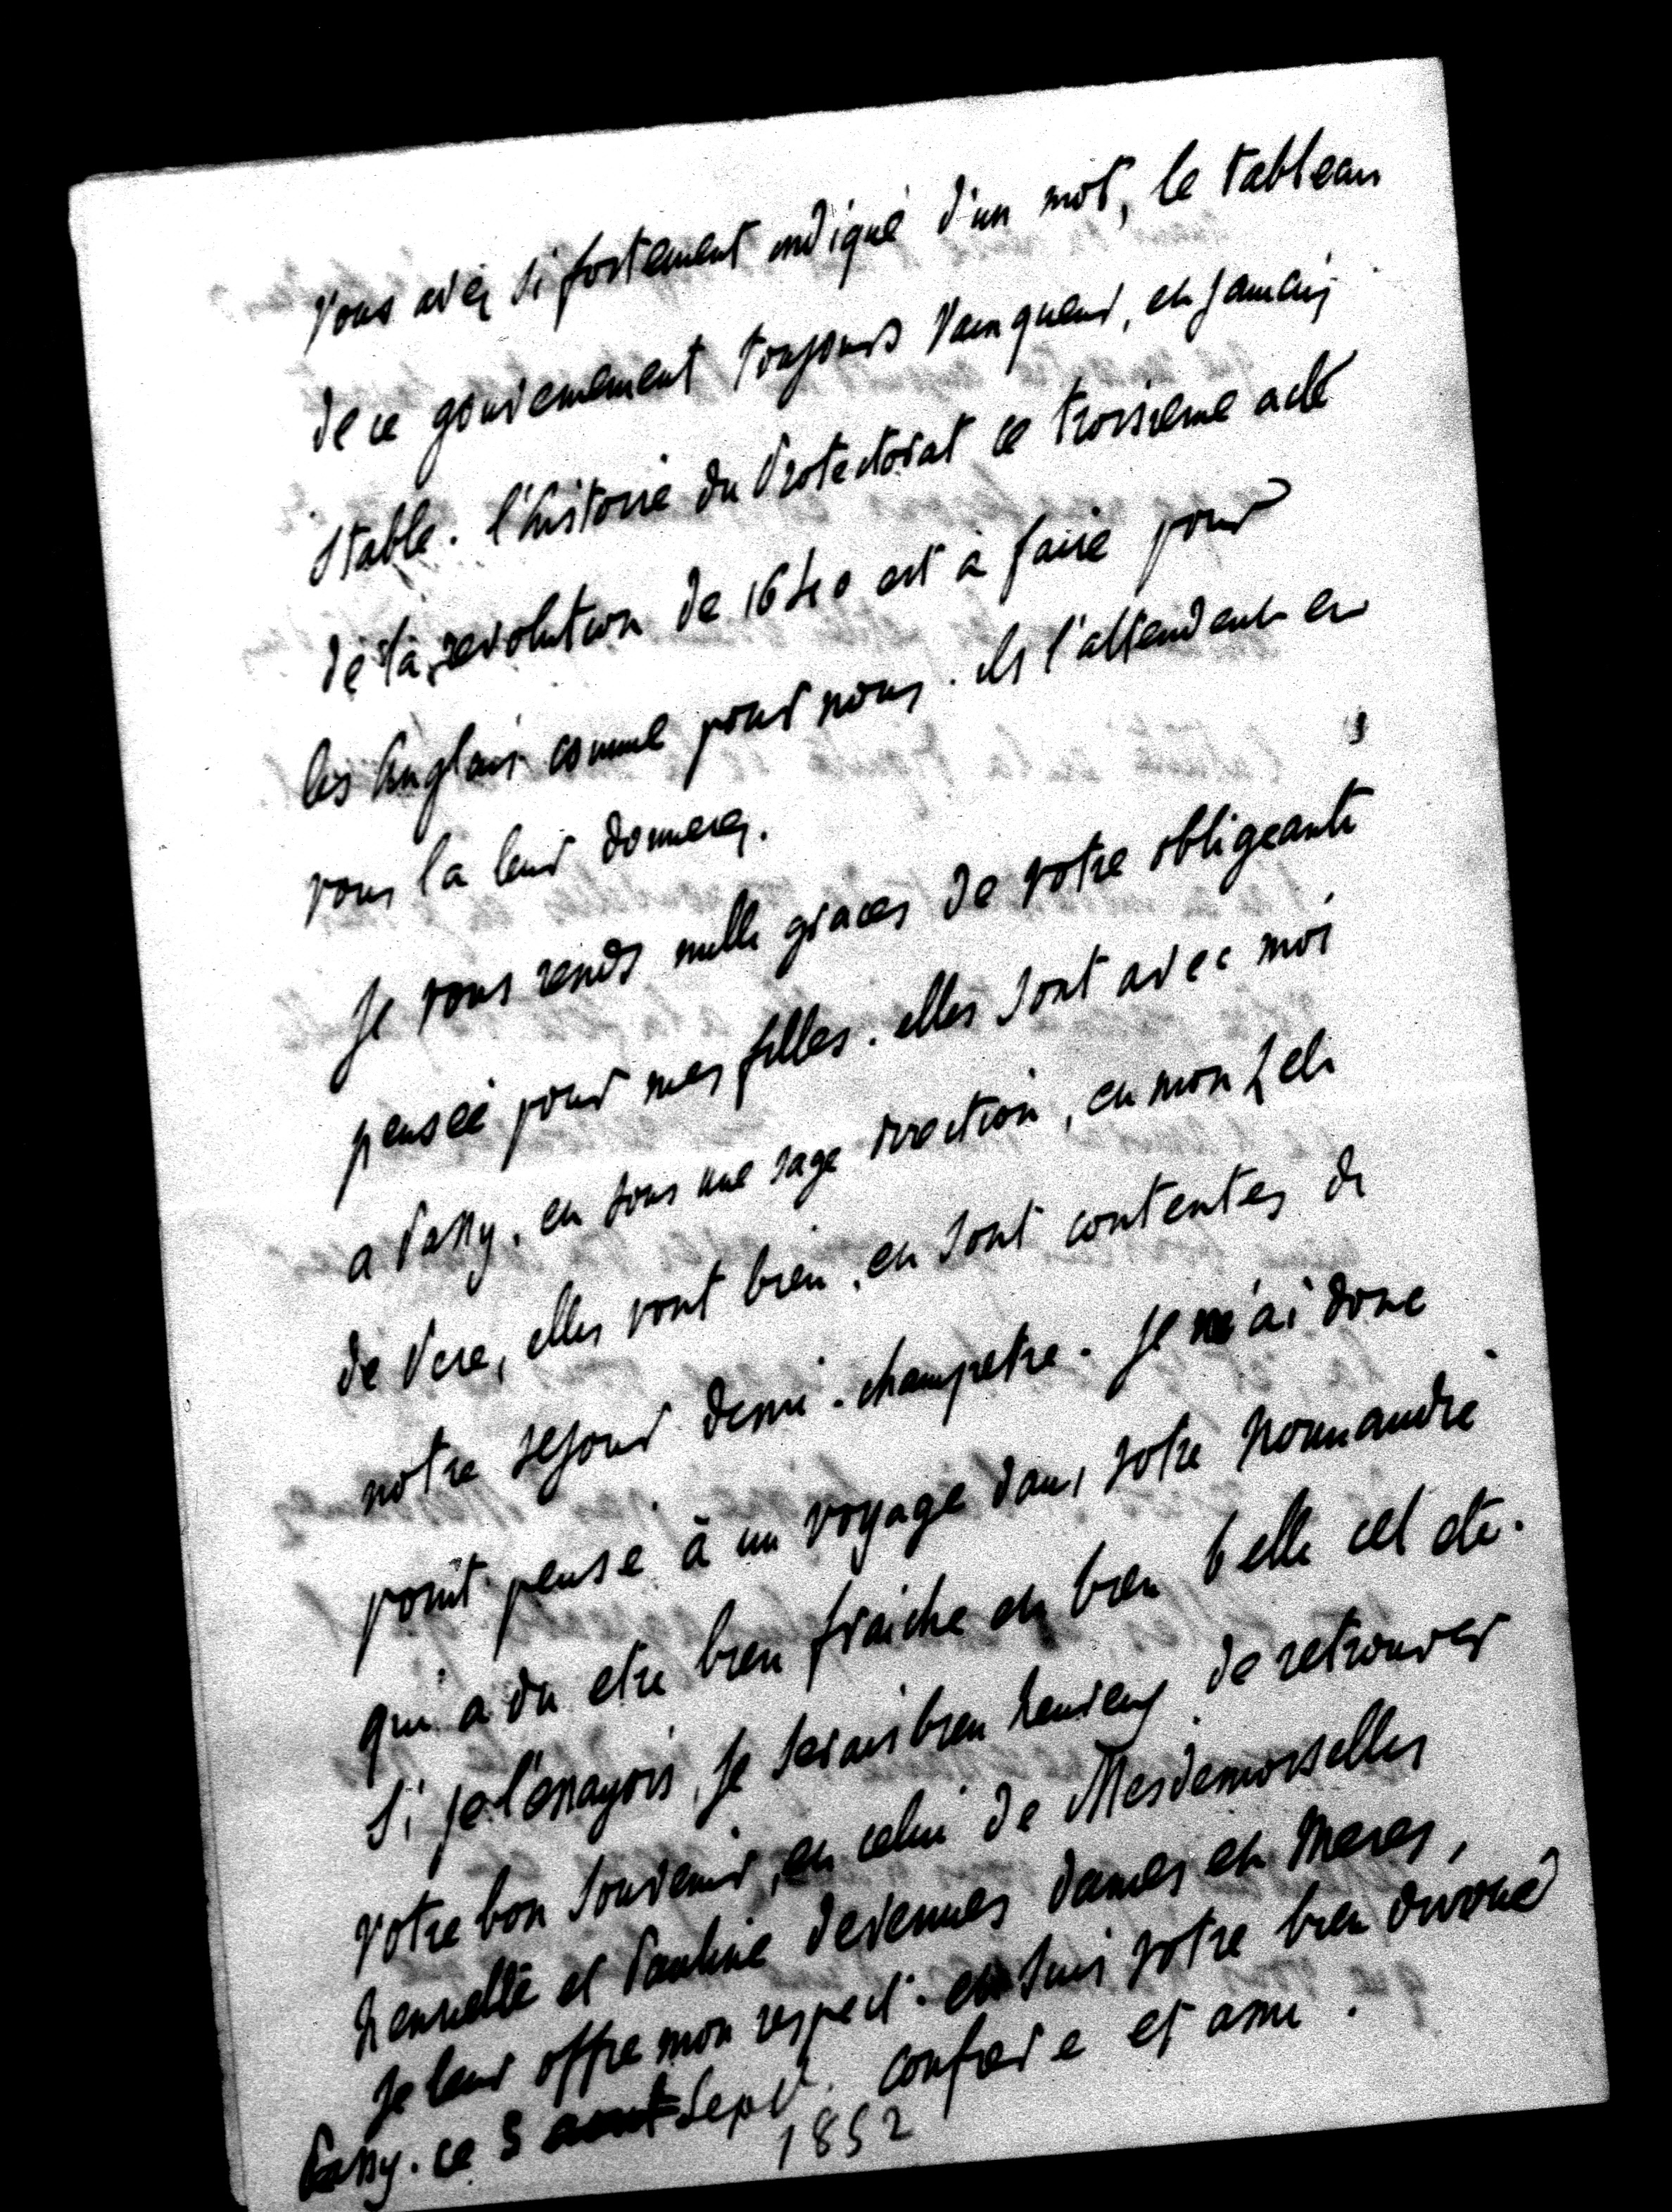 vous avez si fortement indiqué d'un mot, le tableau
de ce gouvernement toujours vainqueur, et jamais
stable. l'histoire du Protectorat ce troisieme acte
de la revolution de 1640 est à faire pour
les Anglais comme pour nous. ils l'attendent et
vous la leur donnerez.
Je vous rends mille graces de votre obligeante
pensée pour mes filles. elles sont avec moi
a Passy. et sous une sage direction, et mon zele
de Pere, elles vont bien, et sont contentes de
notre sejour demi-champetre. Je n'ai donc
point pensé à un voyage dans votre Normandie
qui a du etre bien fraiche et bien belle cet eté.
Si je l'essayois, je serais bien heureux de retrouver
votre bon souvenir, et celui de Mesdemoiselles
henriette et Pauline devenues dames et meres,
Je leur offre mon respect. et suis votre bien devoué
confrere et ami.
Passy. ce 5 aout Sept.
1852